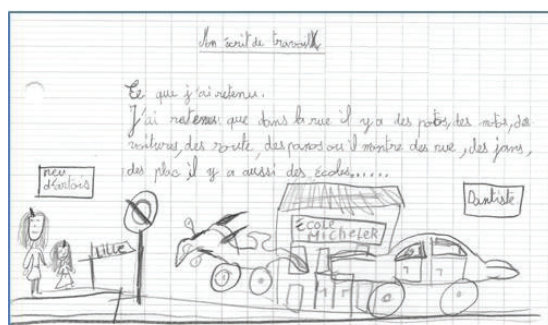 Mon écrit de travail
Ce que j'ai retenu.
J'ai retenus que dans la rue il y a des potos, des motos, des
voitures, des route, des panos ou il montre des rue, des jans,
des plac, il y a aussi des écoles......
reu
d'artois
LiLLE
ÉCOLE
MicheleR
Dantiste